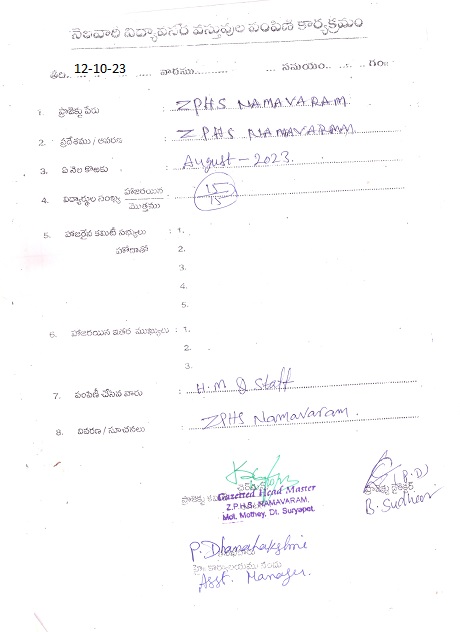 నెలవారి విద్యావసర వస్తువుల పంపిణి కార్యక్రమం
తేది. 12-10-23 వారము......... సమయం......... గం॥
1. ప్రాజెక్టు పేరు : ZPHS NAMAVARAM.
2. ప్రదేశము / ఆవరణ : ZPHS NAMAVARAM
3. ఏ నెల కొఱకు : August - 2023.
4. విద్యార్థుల సంఖ్య హాజరయిన / మొత్తము : 15/15
5. హాజరైన కమిటీ సభ్యులు : 1.
హోదాతో 2.
3.
4.
5.
6. హాజరయిన ఇతర ముఖ్యులు : 1.
2.
3.
7. పంపిణీ చేసిన వారు : H.M & Staff
8. వివరణ / సూచనలు : ZPHS Namavaram.
Gazetted Head Master
Z.P.H.S. NAMAVARAM,
Mdl. Mothey, Dt. Suryapet.
(P.D)
ప్రాజెక్టు డైరెక్టర్
B. Sudheer
P. Dhanalakshmi
Asst. Manager.